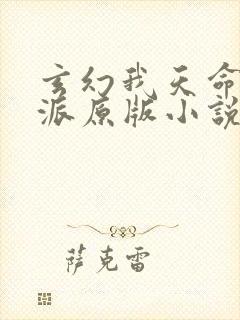 玄幻我天命
派原版小說
萨克雷